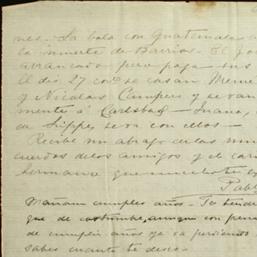 nes. La bola con Guatemala a
la muerte de Barrios. El po
arrancado pero paga sus
el dia 27 cor.te se casan Meme
y Nicolas Campero y se van
mente á Carlsbad - Juana,
da Luppe, se va con ellos -
Recibe un abrazo de las mu
cuerdos de los amigos y el cari
hermano que mucho te
Pabl
Mañana cumples años. Te tendre
que de costumbre, aunque con pena
de cumplir años ya va perdiendo
sabes cuanto te deseo.